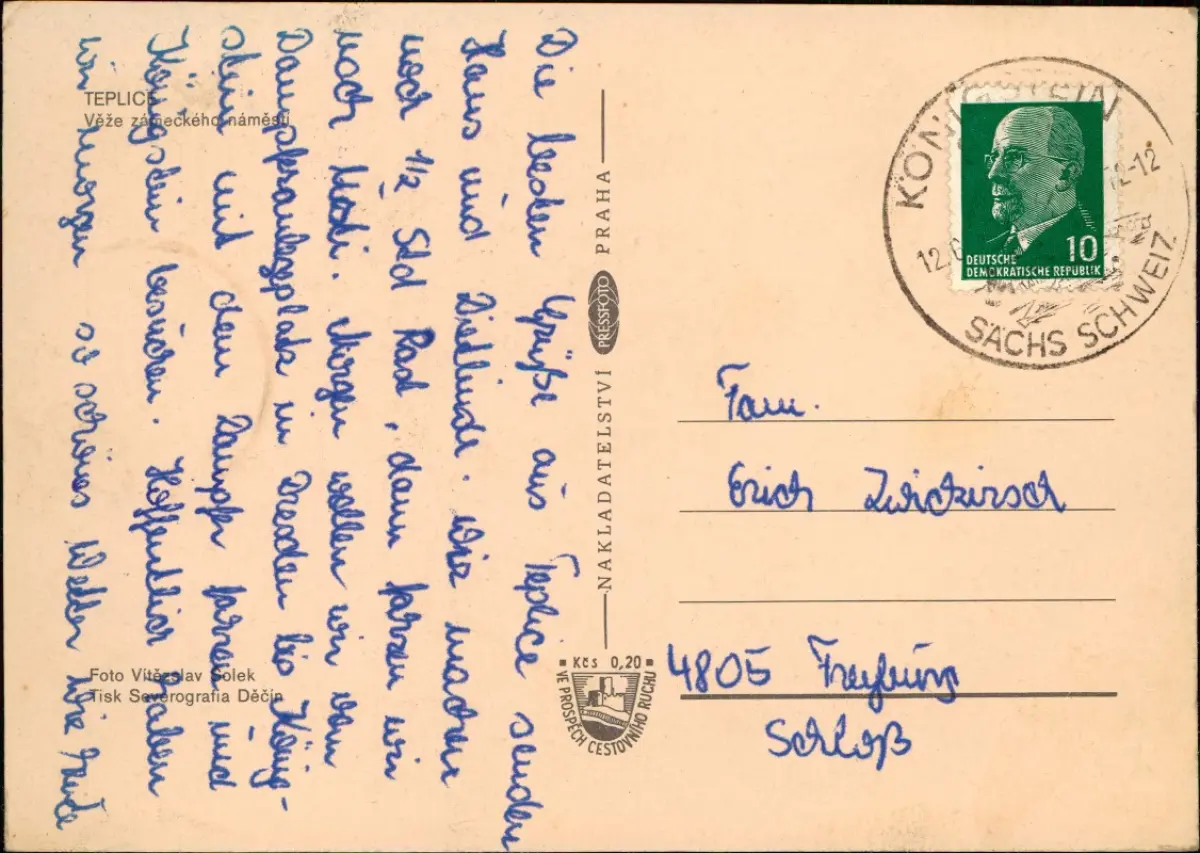 TEPLICE
Věže zámeckého náměstí
Die besten Grüße aus Teplice senden
Hans und Dietlinde. Wir machen
noch 1/2 Std Rad, dann fahren wir
nach Hause. Morgen wollen wir vom
Dampferanlegeplatz in Dresden bis König-
stein mit dem Dampfer fahren und
Königstein besuchen. Hoffentlich haben
wir morgen so schönes Wetter wie heute
Foto Vítězslav Solek
Tisk Severografia Děčín
NAKLADATELSTVÍ PRESSFOTO PRAHA
Kčs 0,20
VE PROSPĚCH CESTOVNÍHO RUCHU
KÖNIGSTEIN
12.6
12-12
SÄCHS SCHWEIZ
10
DEUTSCHE
DEMOKRATISCHE REPUBLIK
Fam.
Erich Zwickirsch
4805 Freyburg
Schloß